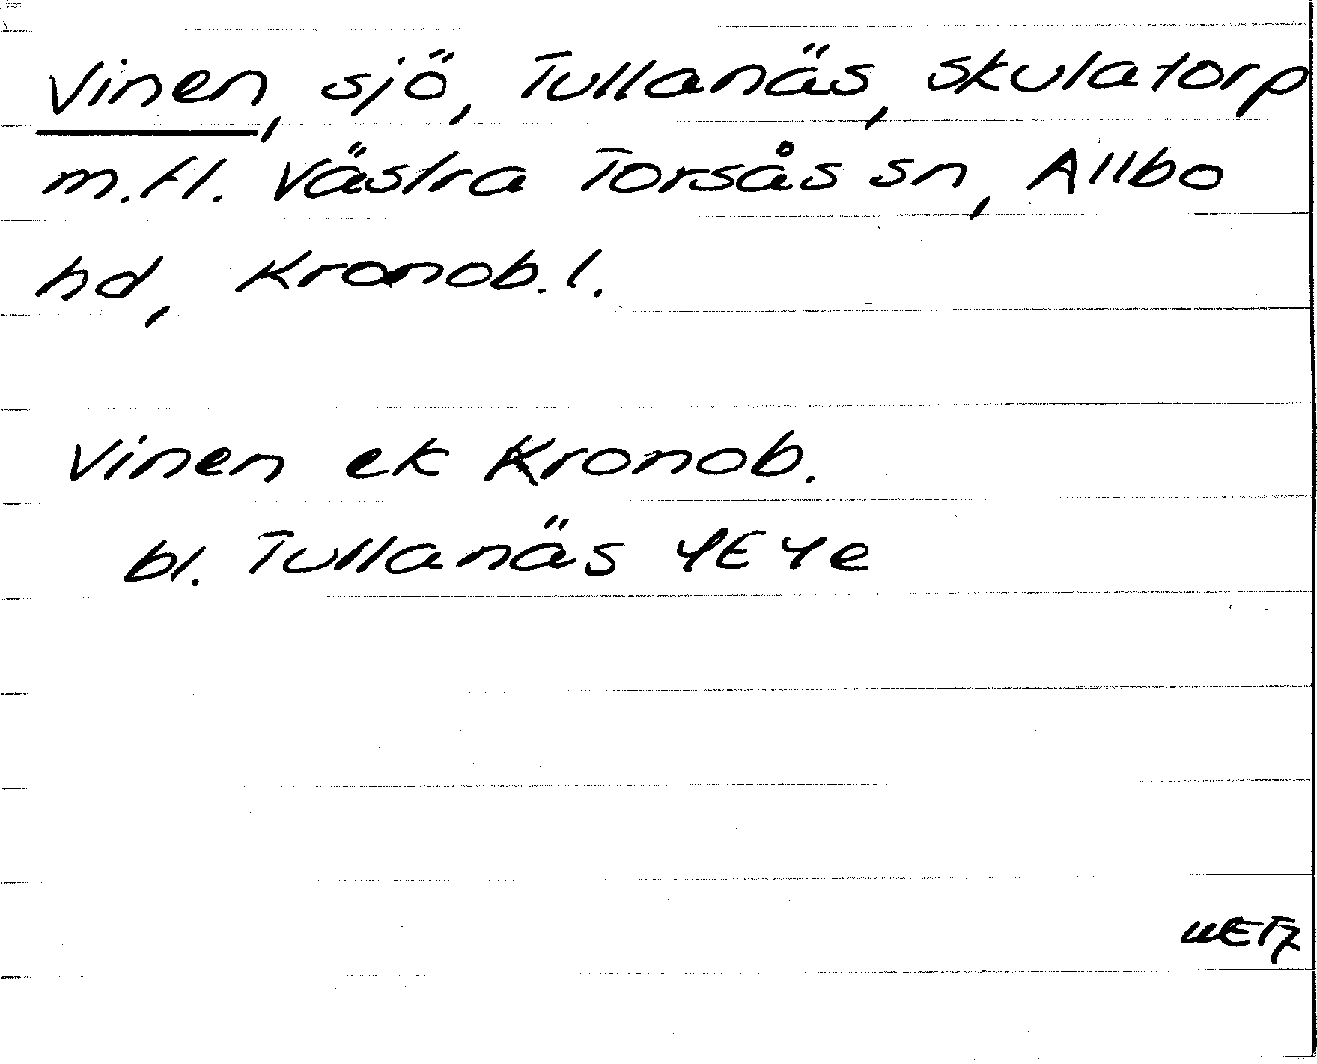 Vinen, sjö, Tullanäs, Skulatorp
m.fl. Västra Torsås sn, Allbo
hd, Kronob. l.
Vinen ek Kronob.
bl. Tullanäs 4E4e